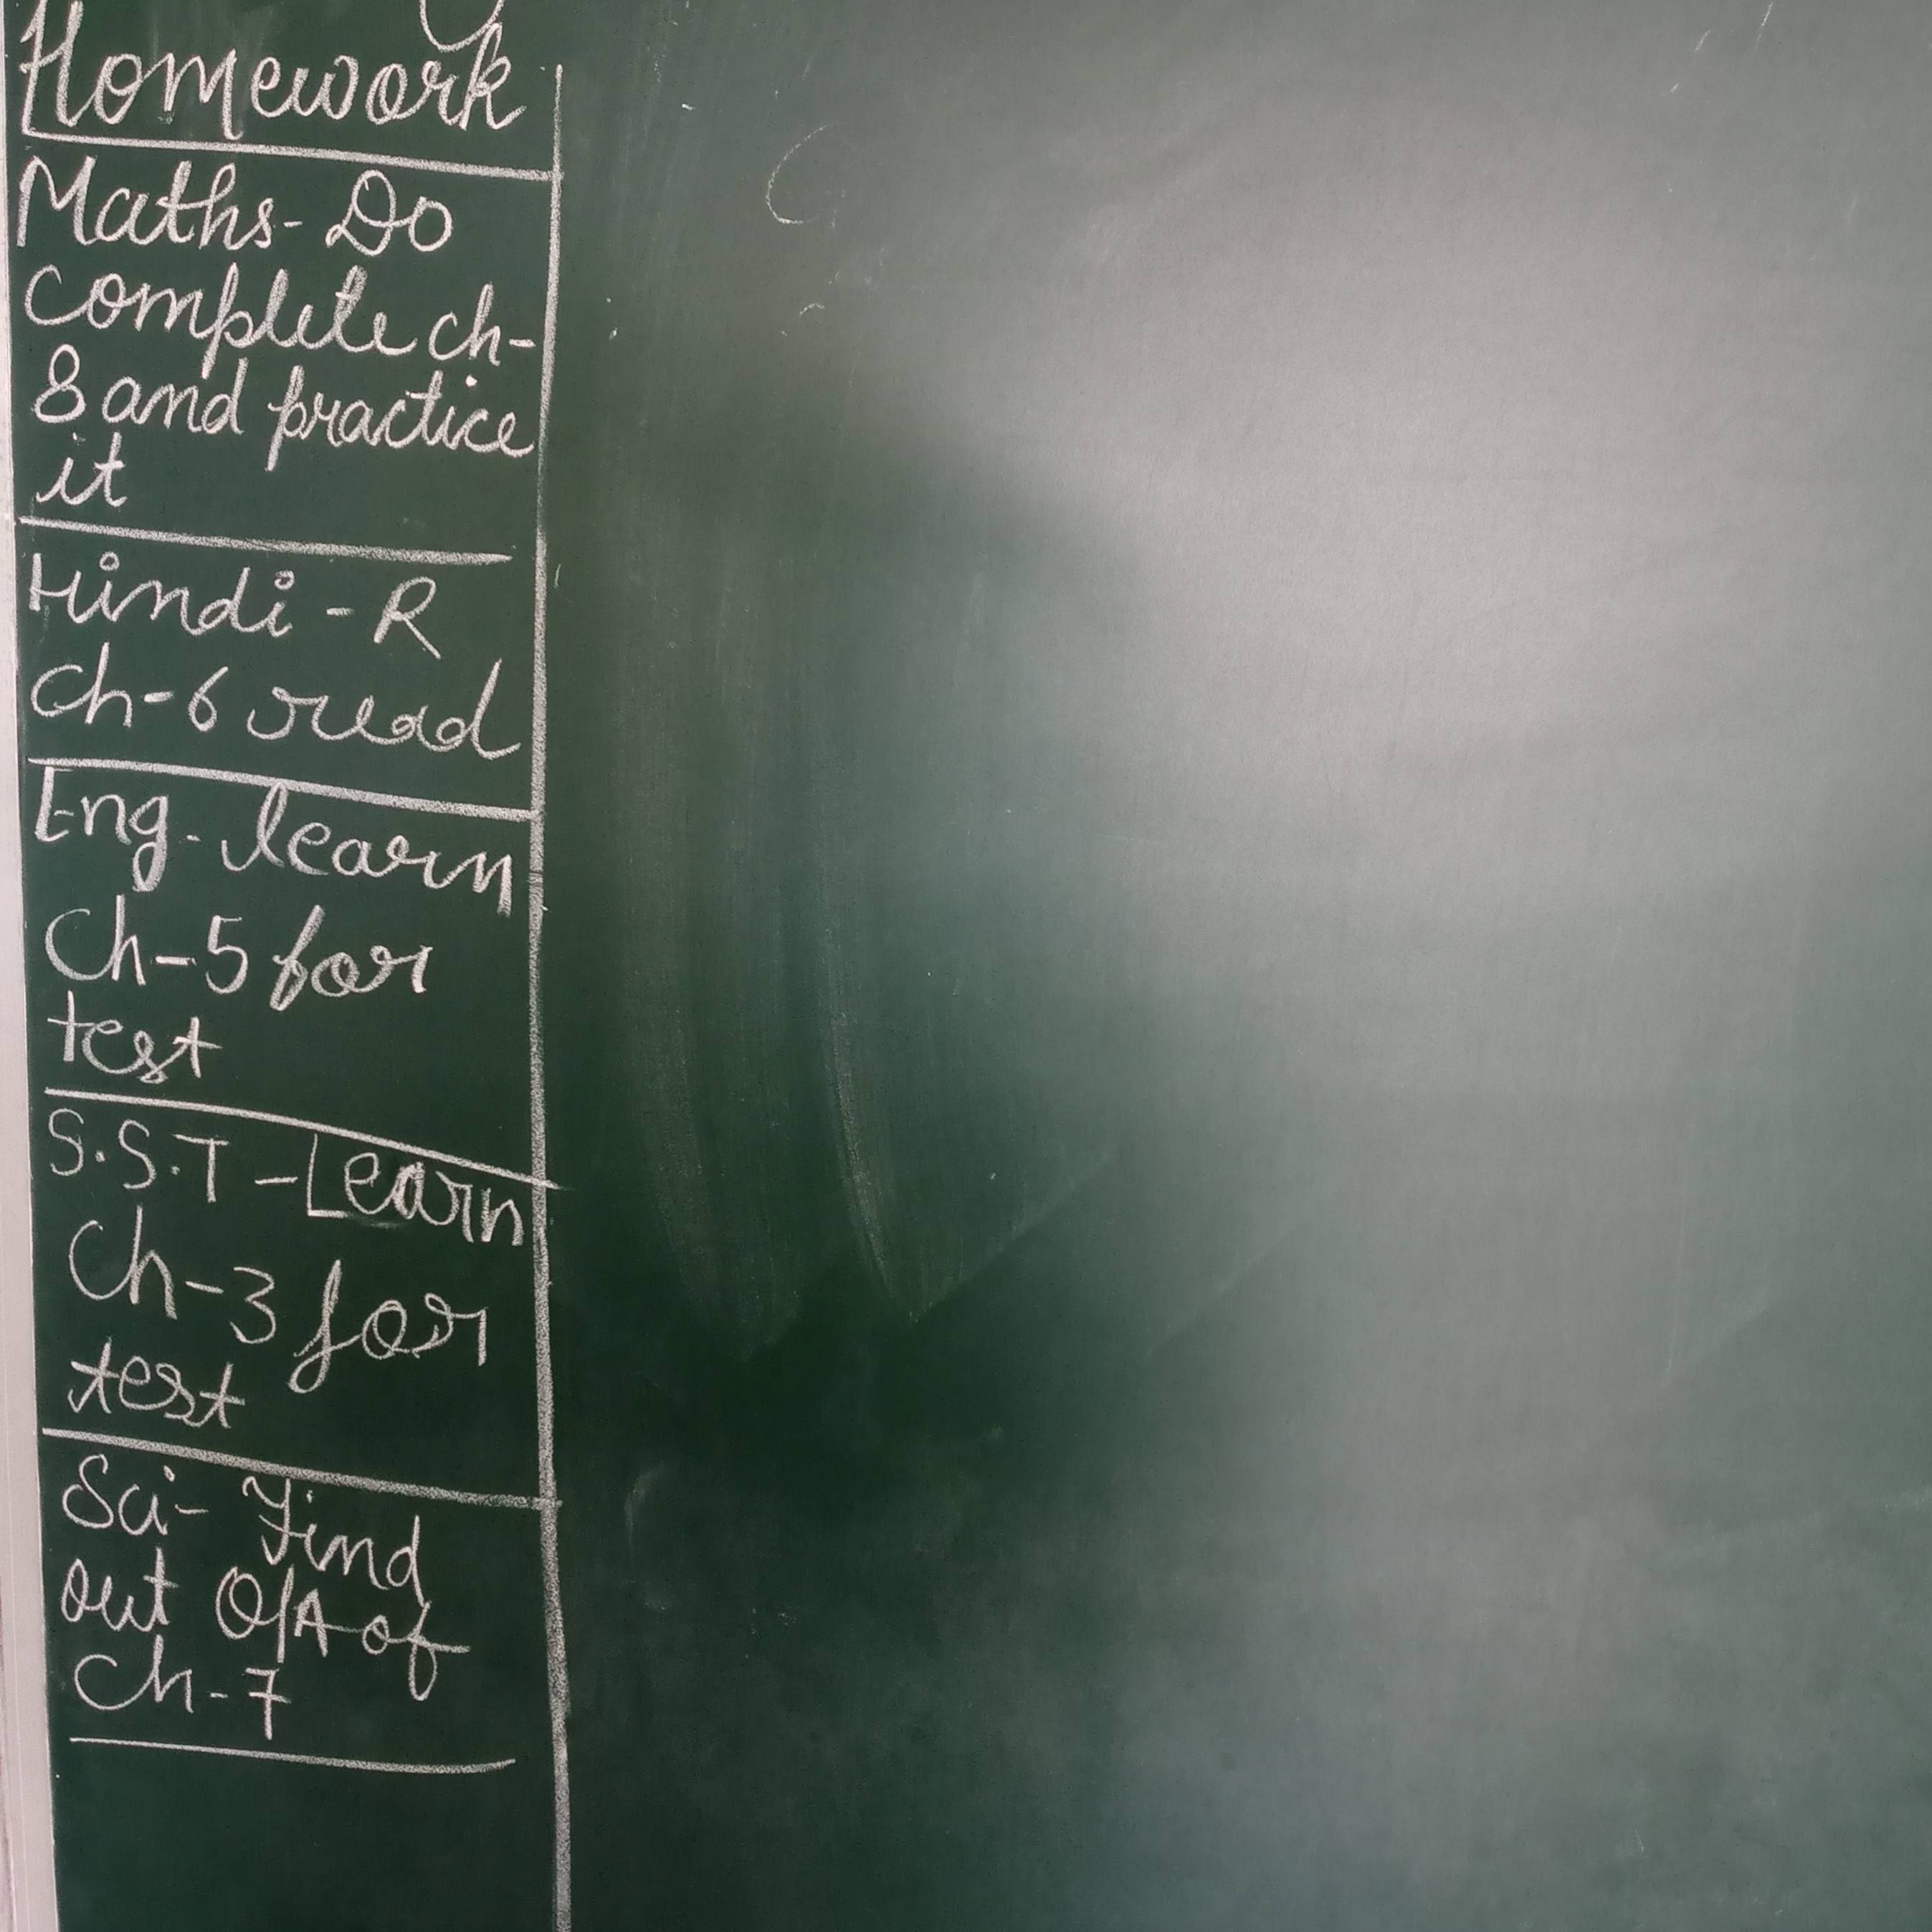 Homework
Maths- Do
complete ch-
8 and practice
it
Hindi - R
Ch-6 read
Eng- learn
Ch-5 for
test
S.S.T - Learn
Ch-3 for
test
Sci- Find
out Q/A of
Ch-7